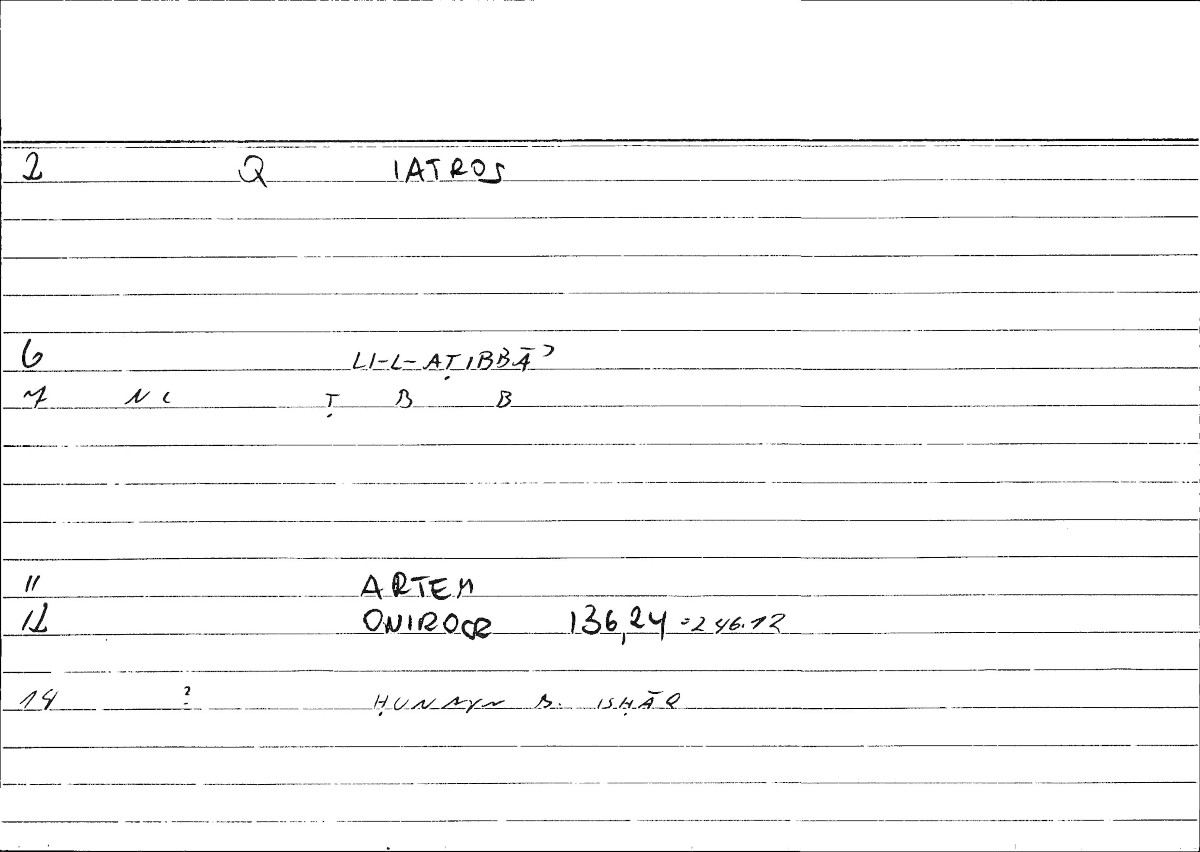 2 Q IATROS
6 LI-L-AṬIBBĀʾ
7 NC Ṭ B B
11 ARTEM
12 ONIROCR 136,24 =246.12
14 ? ḤUNAYN B. ISḤĀQ